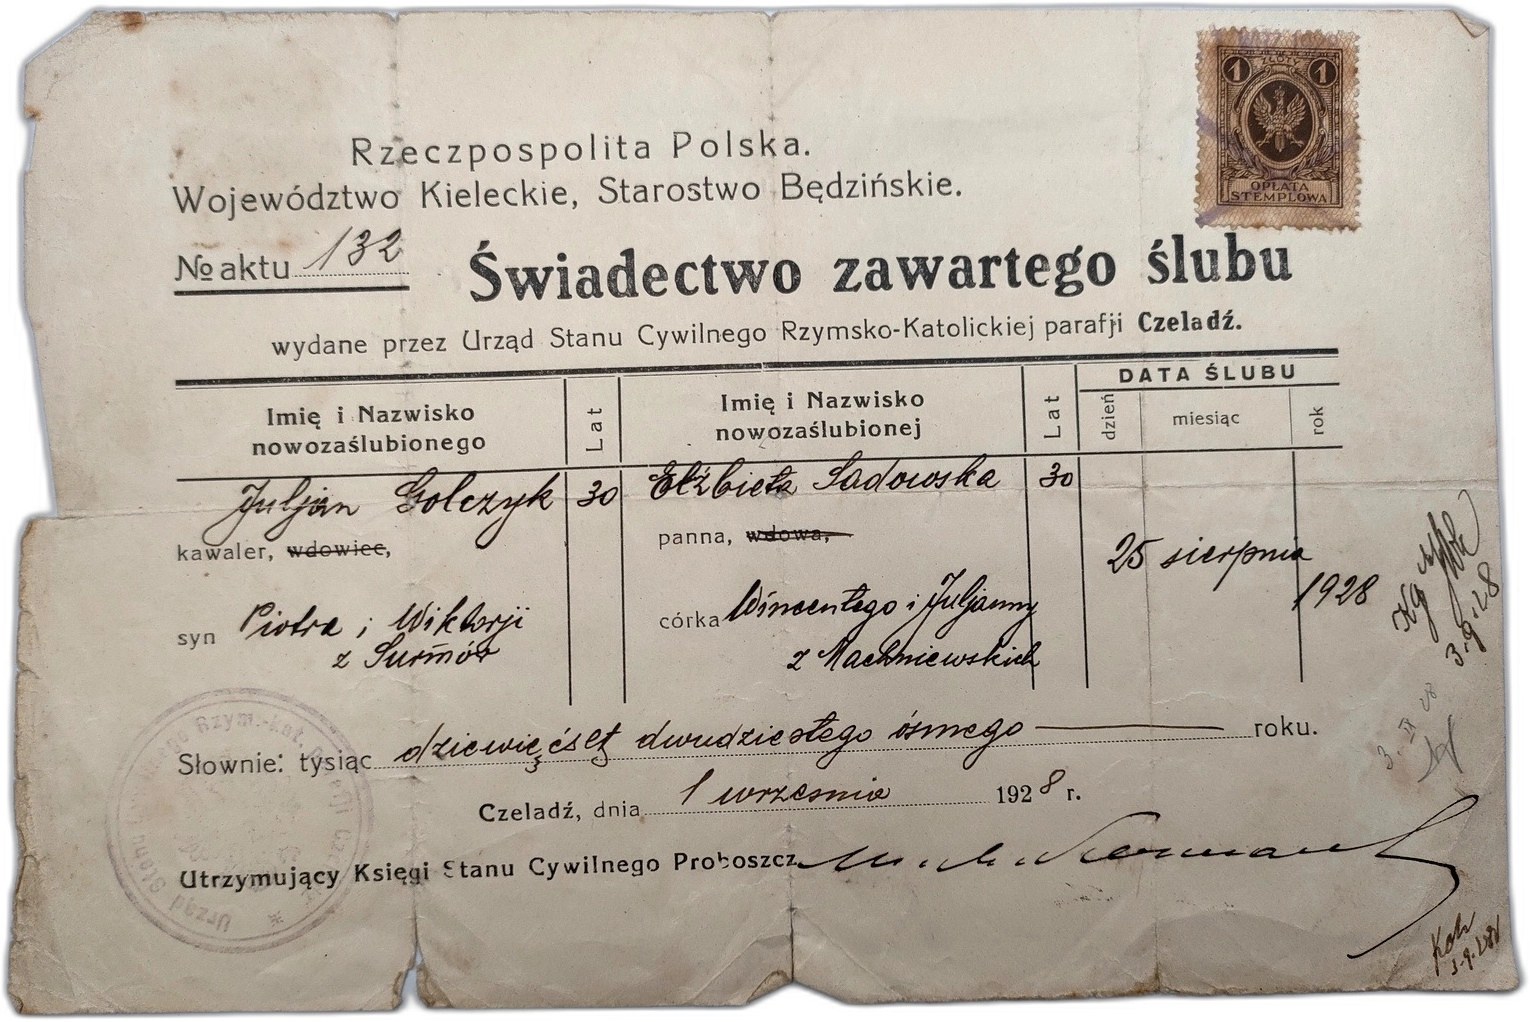 1 ZŁOTY 1
OPŁATA
STEMPLOWA
Rzeczpospolita Polska.
Województwo Kieleckie, Starostwo Będzińskie.
No aktu 132
Świadectwo zawartego ślubu
wydane przez Urząd Stanu Cywilnego Rzymsko-Katolickiej parafji Czeladź.
Imię i Nazwisko nowozaślubionego
Lat
Imię i Nazwisko nowozaślubionej
Lat
DATA ŚLUBU
dzień miesiąc rok
Juljan Golczyk 30 Elżbieta Sadowska 30
kawaler, wdowiec, panna, wdowa,
25 sierpnia
1928
syn Piotra i Wiktorji córka Wincentego i Juljanny
z Surmów z Machniewskich
3.9.28
Słownie: tysiąc dziewięćset dwudziestego ósmego roku.
Czeladź, dnia 1 września 1928 r.
Utrzymujący Księgi Stanu Cywilnego Proboszcz
Urząd Stanu Rzym.-kat.